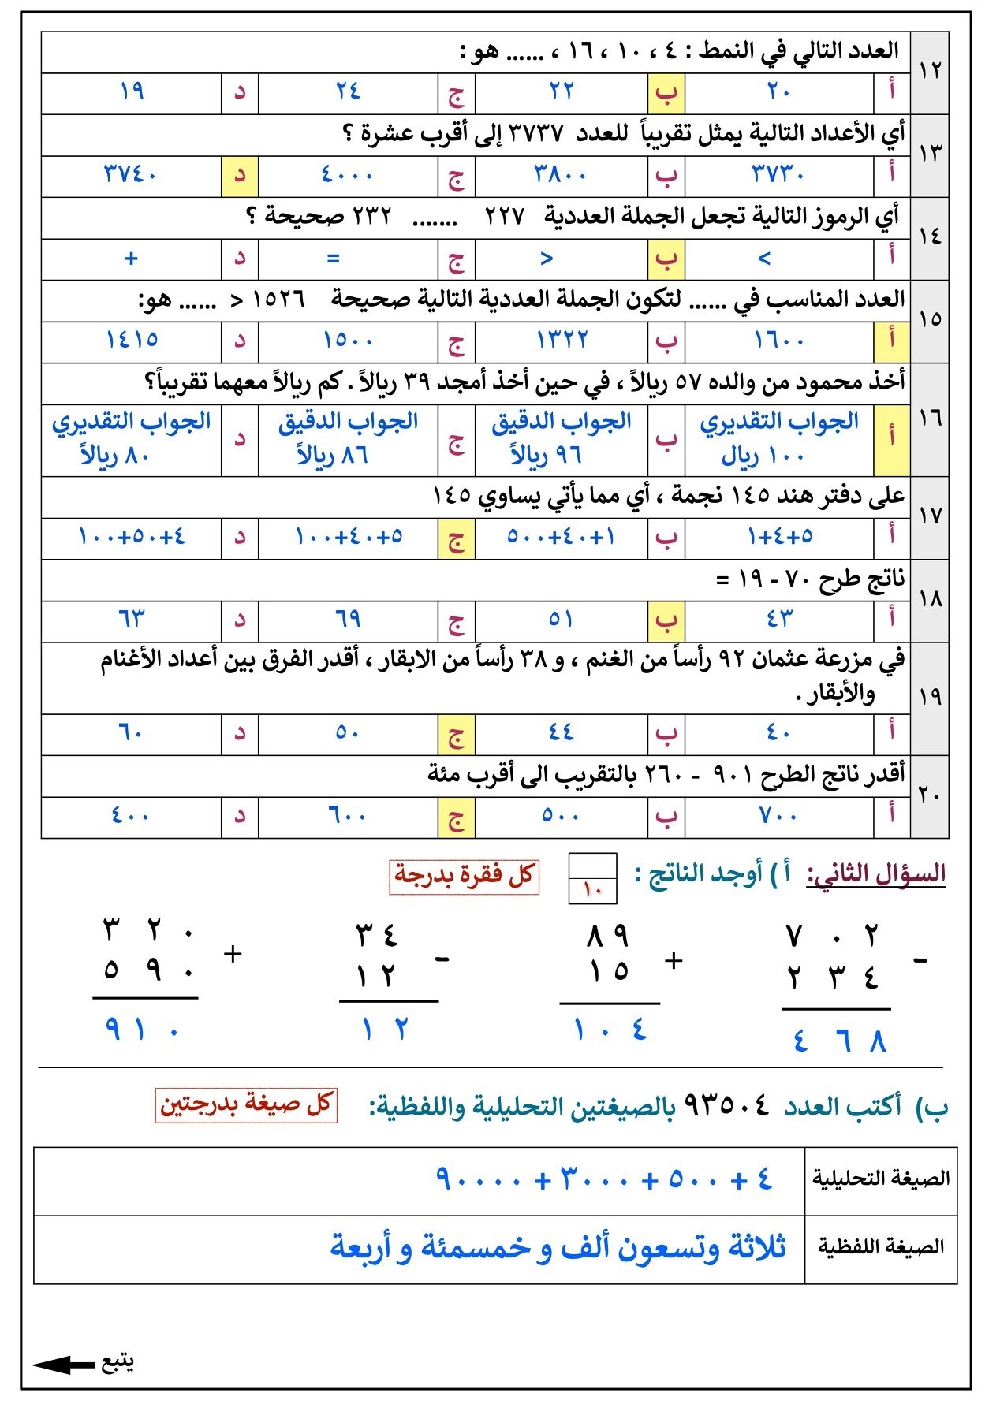 ١٢ العدد التالي في النمط : ٤ ، ١٠ ، ١٦ ، ...... هو :
أ ٢٠ ب ٢٢ ج ٢٤ د ١٩
١٣ أي الأعداد التالية يمثل تقريباً للعدد ٣٧٣٧ إلى أقرب عشرة ؟
أ ٣٧٣٠ ب ٣٨٠٠ ج ٤٠٠٠ د ٣٧٤٠
١٤ أي الرموز التالية تجعل الجملة العددية ٢٢٧ ....... ٢٣٢ صحيحة ؟
أ > ب < ج = د +
١٥ العدد المناسب في ...... لتكون الجملة العددية التالية صحيحة ١٥٢٦ < ...... هو:
أ ١٦٠٠ ب ١٣٢٢ ج ١٥٠٠ د ١٤١٥
١٦ أخذ محمود من والده ٥٧ ريالاً ، في حين أخذ أمجد ٣٩ ريالاً . كم ريالاً معهما تقريباً؟
أ الجواب التقديري ب الجواب الدقيق ج الجواب الدقيق د الجواب التقديري
١٠٠ ريال ٩٦ ريالاً ٨٦ ريالاً ٨٠ ريالاً
١٧ على دفتر هند ١٤٥ نجمة ، أي مما يأتي يساوي ١٤٥
أ ٥+٤+١ ب ١+٤٠+٥٠٠ ج ٥+٤٠+١٠٠ د ٤+٥٠+١٠٠
١٨ ناتج طرح ٧٠ - ١٩ =
أ ٤٣ ب ٥١ ج ٦٩ د ٦٣
١٩ في مزرعة عثمان ٩٢ رأساً من الغنم ، و ٣٨ رأساً من الابقار ، أقدر الفرق بين أعداد الأغنام
والأبقار .
أ ٤٠ ب ٤٤ ج ٥٠ د ٦٠
٢٠ أقدر ناتج الطرح ٩٠١ - ٢٦٠ بالتقريب الى أقرب مئة
أ ٧٠٠ ب ٥٠٠ ج ٦٠٠ د ٤٠٠
السؤال الثاني: أ ) أوجد الناتج : ١٠ كل فقرة بدرجة
٧ ٠ ٢ - ٨ ٩ + ٣ ٤ - ٣ ٢ ٠ +
٢ ٣ ٤ ١ ٥ ١ ٢ ٥ ٩ ٠
٤ ٦ ٨ ١ ٠ ٤ ١ ٢ ٩ ١ ٠
ب) أكتب العدد ٩٣٥٠٤ بالصيغتين التحليلية واللفظية: كل صيغة بدرجتين
الصيغة التحليلية ٤ + ٥٠٠ + ٣٠٠٠ + ٩٠٠٠٠
الصيغة اللفظية ثلاثة وتسعون ألف و خمسمئة و أربعة
يتبع